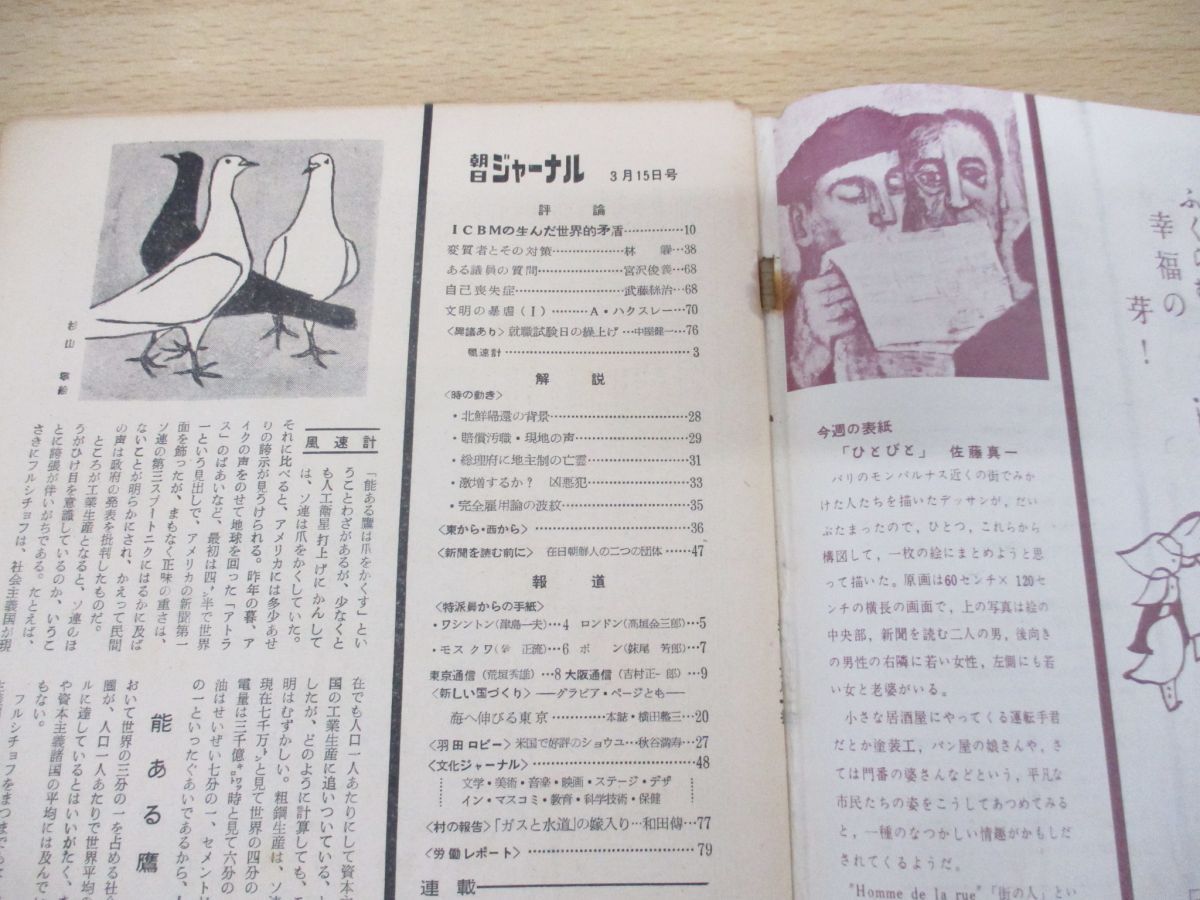 朝日ジャーナル 3月15日号
評論
ICBMの生んだ世界的矛盾…………10
変質者とその対策……………林 髞…38
ある議員の質問………………宮沢俊義…68
自己喪失症……………………武藤絲治…68
文明の暴虐(Ⅰ)………A・ハクスレー…70
〈異議あり〉就職試験日の繰上げ…中屋健一…76
風速計……………………………………3
解説
〈時の動き〉
・北鮮帰還の背景…………………………28
・賠償汚職・現地の声……………………29
・総理府に地主制の亡霊…………………31
・激増するか? 凶悪犯…………………33
・完全雇用論の波紋………………………35
〈東から・西から〉………………………36
〈新聞を読む前に〉 在日朝鮮人の二つの団体……47
報道
〈特派員からの手紙〉
・ワシントン(津島一夫)…4 ロンドン(高垣金三郎)…5
・モスクワ( 正流)…6 ボン(妹尾 芳郎)…7
東京通信(荒垣秀雄)…8 大阪通信(吉村正一郎)…9
〈新しい国づくり〉――グラビア・ページとも――
海へ伸びる東京…………本誌・横田 三…20
〈羽田ロビー〉米国で好評のショウユ…秋谷満寿…27
〈文化ジャーナル〉………………………48
文学・美術・音楽・映画・ステージ・デザ
イン・マスコミ・教育・科学技術・保健
〈村の報告〉「ガスと水道」の嫁入り…和田傳…77
〈労働レポート〉…………………………79
連載
杉山
風速計
「能ある鷹は爪をかくす」とい
うことわざがあるが、少なくと
も人工衛星打上げにかんして
は、ソ連は爪をかくしていた。
それに比べると、アメリカには多少あせ
りの誇示が見うけられる。昨年の暮、ア
イクの声をのせて地球を回った「アトラ
ス」のばあいなど、最初は四・半で世界
一という見出しで、アメリカの新聞第一
面を飾ったが、まもなく正味の重さは、
ソ連の第三スプートニクにはるかに及ば
ないことが明らかにされ、かえって民間
の声は政府の発表を批判したものだ。
ところが工業生産となると、ソ連のほ
うがひけ目を意識しているのか、いうこ
とに誇張が伴いがちである。たとえば、
さきにフルシチョフは、社会主義国が現
能ある鷹
在でも人口一人あたりにして資本
国の工業生産に追いついている、
したが、どのように計算しても、
明はむずかしい。粗鋼生産は、ソ
現在七千万㌧と見て世界の四分の
電量は三千億㌔㍗時と見て六分の
油はせいぜい七分の一、セメント
の一といったぐあいであるから、
おいて世界の三分の一を占める社会
圏が、人口一人あたりで世界平均の
ルに達しているとはいいがたく、
や資本主義諸国の平均には及んで
もない。
フルシチョフをまつまでも
今週の表紙
「ひとびと」 佐藤真一
パリのモンパルナス近くの街でみか
けた人たちを描いたデッサンが、だい
ぶたまったので、ひとつ、これらから
構図して、一枚の絵にまとめようと思
って描いた。原画は60センチ×120セ
ンチの横長の画面で、上の写真は絵の
中央部、新聞を読む二人の男、後向き
の男性の右隣に若い女性、左側にも若
い女と老婆がいる。
小さな居酒屋にやってくる運転手君
だとか塗装工、パン屋の娘さんや、さ
ては門番の婆さんなどという、平凡な
市民たちの姿をこうしてあつめてみる
と、一種のなつかしい情趣がかもしだ
されてくるようだ。
"Homme de la rue"「街の人」とい
幸福の
芽!